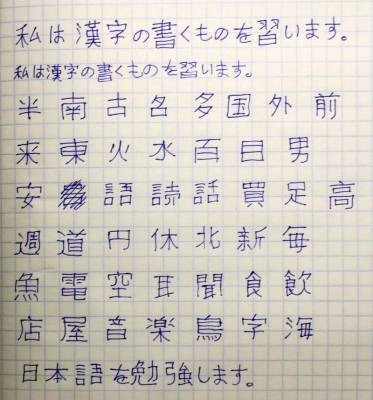 私は漢字の書くものを習います。
私は漢字の書くものを習います。
半 南 古 名 多 国 外 前
来 東 火 水 百 目 男
安 語 読 話 買 足 高
週 道 円 休 北 新 毎
魚 電 空 耳 聞 食 飲
店 屋 音 楽 鳥 字 海
日本語を勉強します。